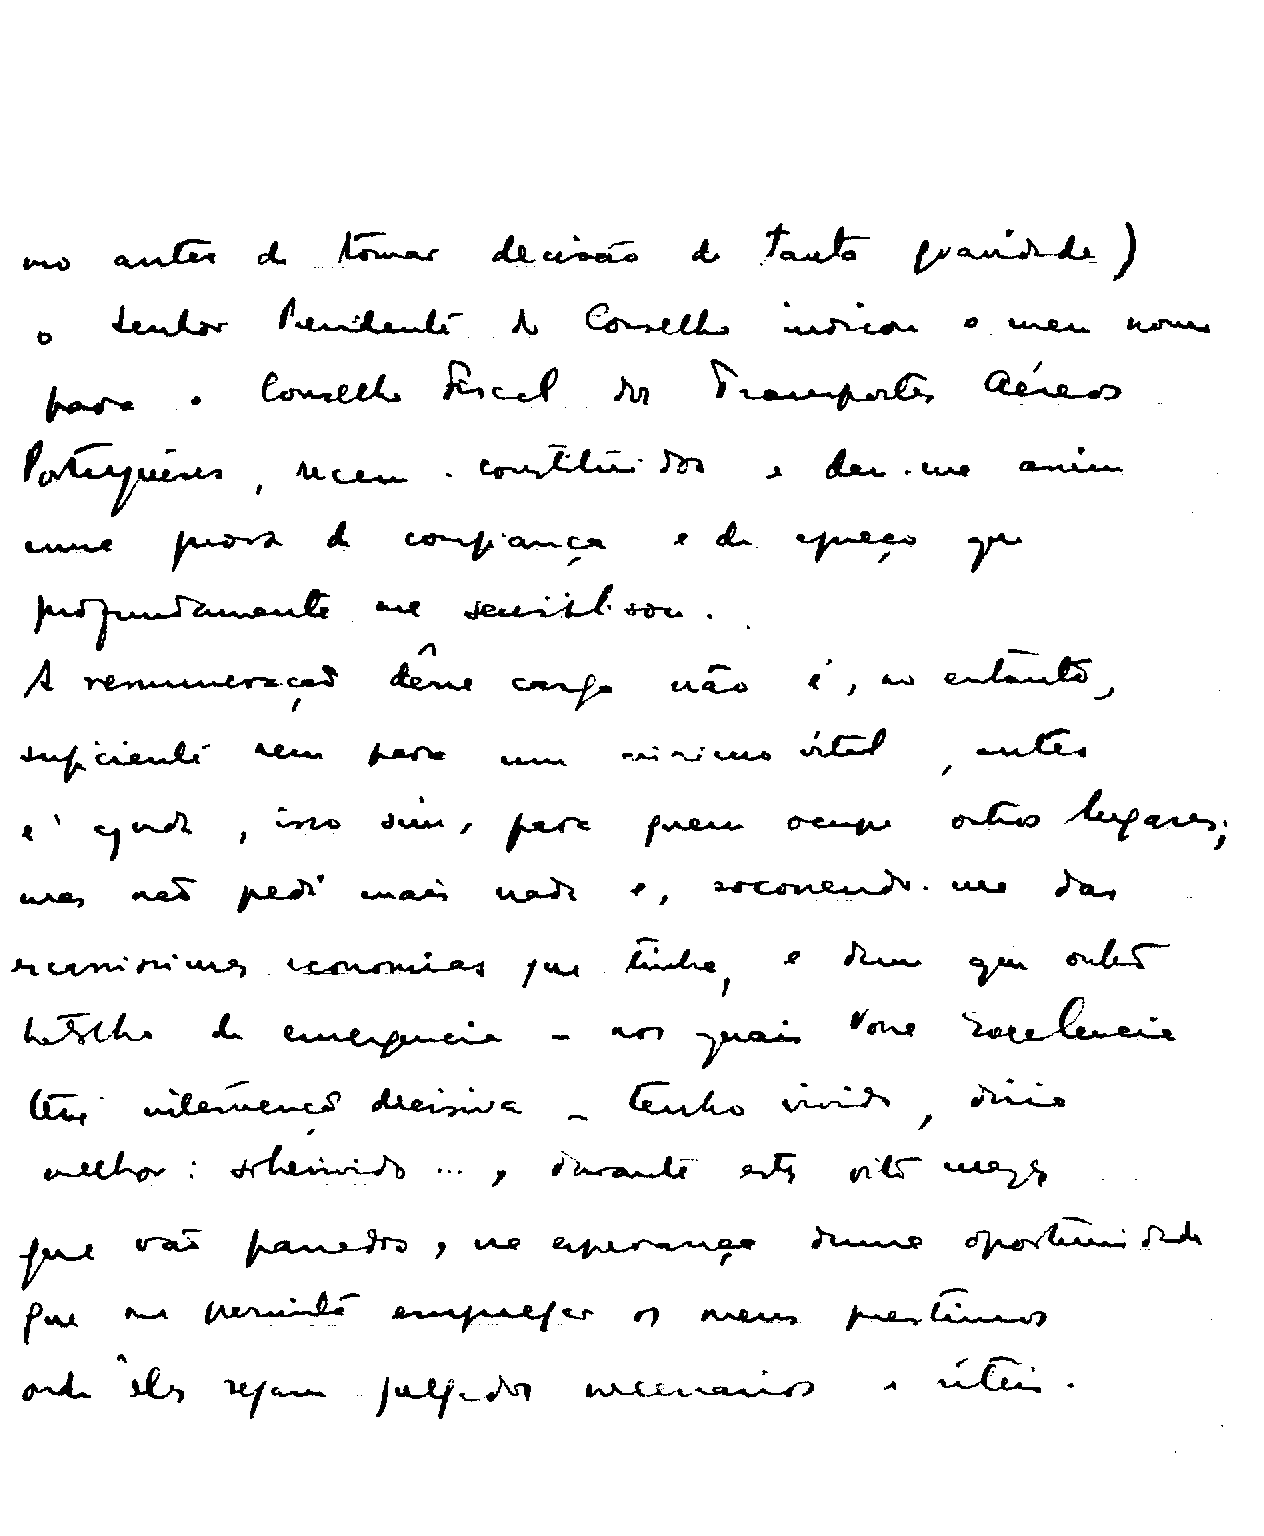 mo antes de tomar decisão de tanta gravidade)
o Senhor Presidente do Conselho indicou o meu nome
para o Conselho Fiscal dos Transportes Aéreos
Portugueses, recem-constituidos e deu-me assim
uma prova de confiança e de apreço que
profundamente me sensibilisou.
A remuneração dêsse cargo não é, no entanto,
suficiente nem para um minimo vital, antes
é ajuda, isso sim, para quem ocupe outros lugares;
mas não pedi mais nada e, socorrendo-me das
escassissimas economias que tinha, e dum ou outro
trabalho de emergencia - nos quais Vossa Excelencia
tem intervenção decisiva - tenho vivido, diria
melhor: sobrevivido ..., durante estes oito mezes
que vão passados, na esperança duma oportunidade
que me permita empregar os meus prestimos
onde êles sejam julgados necessarios e úteis.